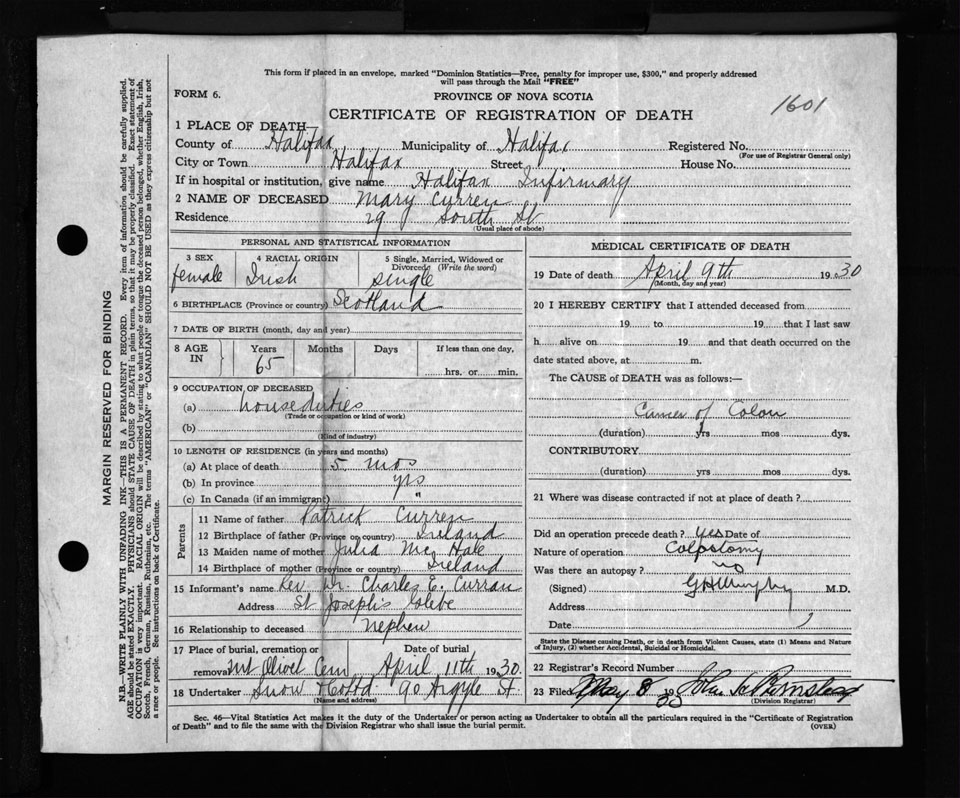 This form if placed in an envelope, marked "Dominion Statistics—Free, penalty for improper use, $300," and properly addressed
will pass through the Mail "FREE"
FORM 6.
PROVINCE OF NOVA SCOTIA
1601
CERTIFICATE OF REGISTRATION OF DEATH
1 PLACE OF DEATH—
County of Halifax Municipality of Halifax Registered No.
(For use of Registrar General only)
City or Town Halifax Street House No.
If in hospital or institution, give name Halifax Infirmary
2 NAME OF DECEASED Mary Curren
Residence 29 South St
(Usual place of abode)
PERSONAL AND STATISTICAL INFORMATION
3 SEX 4 RACIAL ORIGIN 5 Single, Married, Widowed or
Divorced (Write the word)
female Irish single
6 BIRTHPLACE (Province or country) Scotland
7 DATE OF BIRTH (month, day and year)
8 AGE IN Years Months Days If less than one day,
65 hrs. or min.
9 OCCUPATION OF DECEASED
(a) house duties
(Trade or occupation or kind of work)
(b)
(Kind of industry)
10 LENGTH OF RESIDENCE (in years and months)
(a) At place of death 5 mos
(b) In province yrs
(c) In Canada (if an immigrant) "
Parents
11 Name of father Patrick Curren
12 Birthplace of father (Province or country) Ireland
13 Maiden name of mother Julia McHale
14 Birthplace of mother (Province or country) Ireland
15 Informant's name Rev Dr. Charles E. Curran
Address St Joseph's Glebe
16 Relationship to deceased nephew
17 Place of burial, cremation or Date of burial
removal Mt Olivet Cem April 11th 1930.
18 Undertaker Snow 90 Argyle St.
(Name and address)
MEDICAL CERTIFICATE OF DEATH
19 Date of death April 9th 1930
(Month, day and year)
20 I HEREBY CERTIFY that I attended deceased from
19 to 19 that I last saw
h alive on 19 and that death occurred on the
date stated above, at m.
The CAUSE of DEATH was as follows:—
Cancer of Colon
(duration) yrs mos dys.
CONTRIBUTORY
(duration) yrs mos dys.
21 Where was disease contracted if not at place of death?
Did an operation precede death? yes Date of
Nature of operation Colostomy
Was there an autopsy? no
(Signed) G H Murphy M.D.
Address
Date
State the Disease causing Death, or in death from Violent Causes, state (1) Means and Nature
of Injury, (2) whether Accidental, Suicidal or Homicidal.
22 Registrar's Record Number
23 Filed May 8 1930 John
(Division Registrar)
Sec. 46—Vital Statistics Act makes it the duty of the Undertaker or person acting as Undertaker to obtain all the particulars required in the "Certificate of Registration
of Death" and to file the same with the Division Registrar who shall issue the burial permit.
(OVER)
MARGIN RESERVED FOR BINDING
N.B.—WRITE PLAINLY WITH UNFADING INK—THIS IS A PERMANENT RECORD. Every item of information should be carefully supplied.
AGE should be stated EXACTLY. PHYSICIANS should STATE CAUSE OF DEATH in plain terms, so that it may be properly classified. Exact statement of
OCCUPATION is very important. RACIAL ORIGIN will be described by stating to what people or tongue the deceased person belonged, whether English, Irish,
Scotch, French, German, Russian, Ruthenian, etc. The terms "AMERICAN" or "CANADIAN" SHOULD NOT BE USED as they express citizenship but not
a race or people. See instructions on back of Certificate.